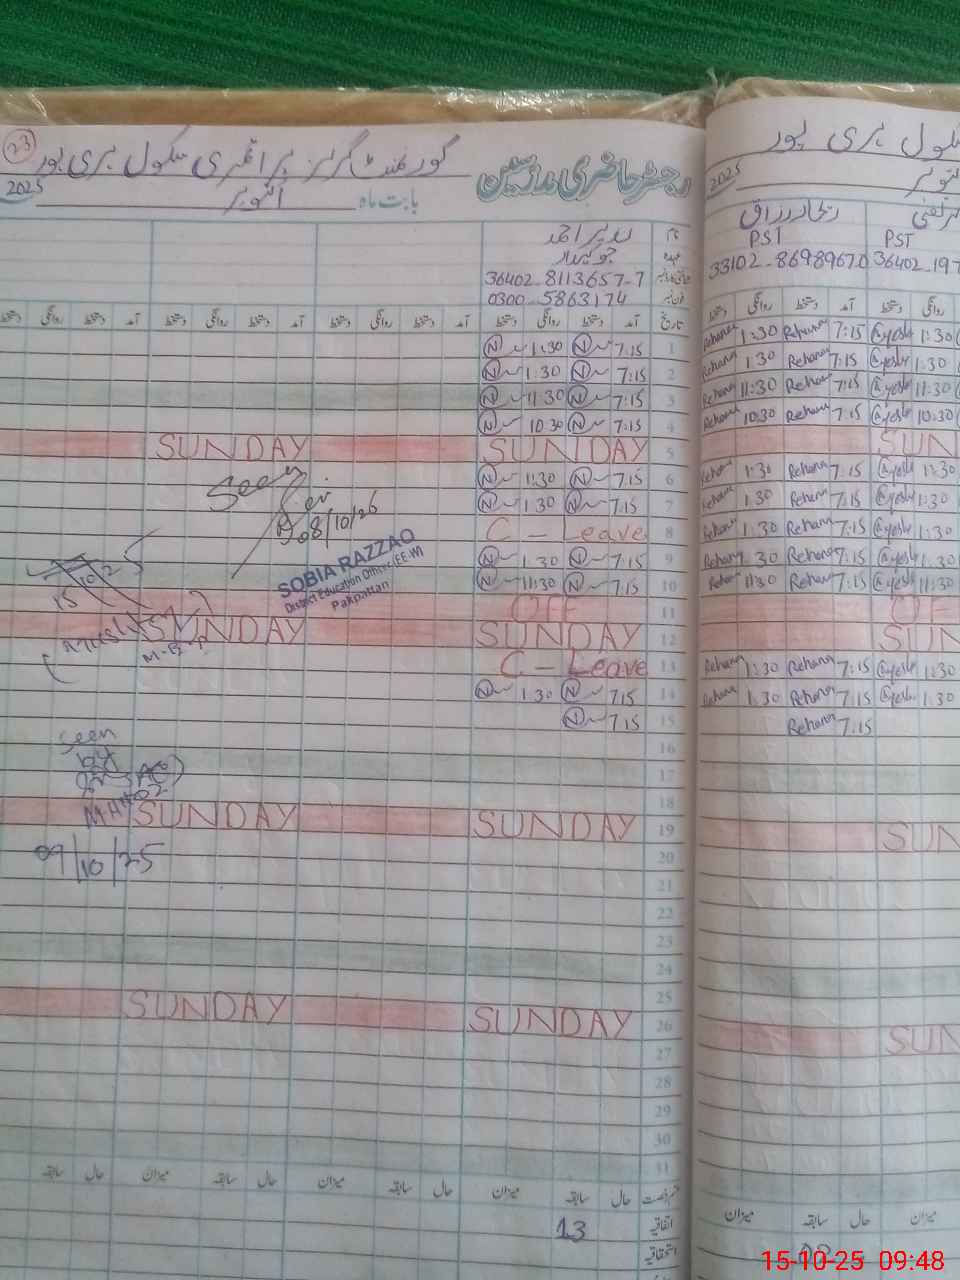 23
گورنمنٹ گرلز پرائمری سکول ہری پور
رجسٹر حاضری مدرسین
2025
بابت ماہ اکتوبر
نام
جوکیدار
36402-8113657-7
0300-5863174
تاریخ آمد دستخط روانگی دستخط آمد دستخط روانگی دستخط آمد دستخط روانگی دستخط
1 7:15 N 1:30 N
2 7:15 N 1:30 N
3 7:15 N 11:30 N
4 7:15 N 10:30 N
5 SUNDAY SUNDAY
6 7:15 N 1:30 N
Seen
7 7:15 N 1:30 N
08/10/25
8 C - Leave
9 7:15 N 1 30 N
SOBIA RAZZAQ
District Education Officer (EE-W)
Pakpattan
10 7:15 N 11:30 N
15 10 2
11 OFF
12 SUNDAY SUNDAY
13 C - Leave
14 715 N 1 30 N
15 7:15 N
16
Seen
by
17
18
19 SUNDAY SUNDAY
20
09/10/25
21
22
23
24
25
26 SUNDAY SUNDAY
27
28
29
30
31
حال سابقہ میزان حال سابقہ میزان حال سابقہ میزان حال سابقہ
اتفاقیہ 13
استحقاقیہ
سکول ہری پور
2025
ریحانہ رزاق
PST PST
33102-8698967 0 36402-197
آمد دستخط روانگی دستخط
Rehana 1:30 Rehana 7:15 @yesha 1:30
Rehana 1 30 Rehana 7:15 @yesha 1:30
Rehana 11:30 Rehana 7:15 @yesha 11:30
Rehana 10:30 Rehana 7:15 @yesha 10:30
SUN
Rehana 1:30 Rehana 7:15 @yesha 1:30
Rehana 1.30 Rehana 7:15 @yesha 1:30
Rehana 1:30 Rehana 7:15 @yesha 1:30
Rehana 1:30 Rehana 7:15 @yesha 1:30
Rehana 11:30 Rehana 7:15 @yesha 11:30
OF
SUN
Rehana 1:30 Rehana 7:15 @yesha 1:30
Rehana 1:30 Rehana 7:15 @yesha 1:30
Rehana 7:15
SUN
SUN
میزان حال سابقہ میزان
15-10-25 09:48